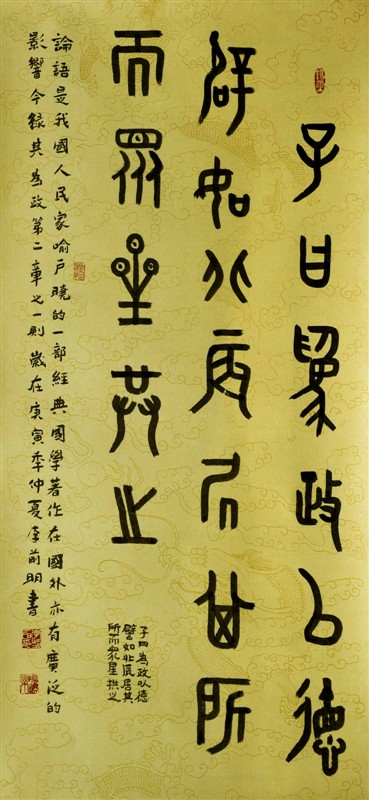 子曰為政以德
辟如北辰居其所
而眾星共之
子曰為政以德
譬如北辰居其
所而眾星拱之
論語是我國人民家喻戶曉的一部經典國學著作在國外亦有廣泛的
影響今錄其為政第二章之一則歲在庚寅秊仲夏李前明書